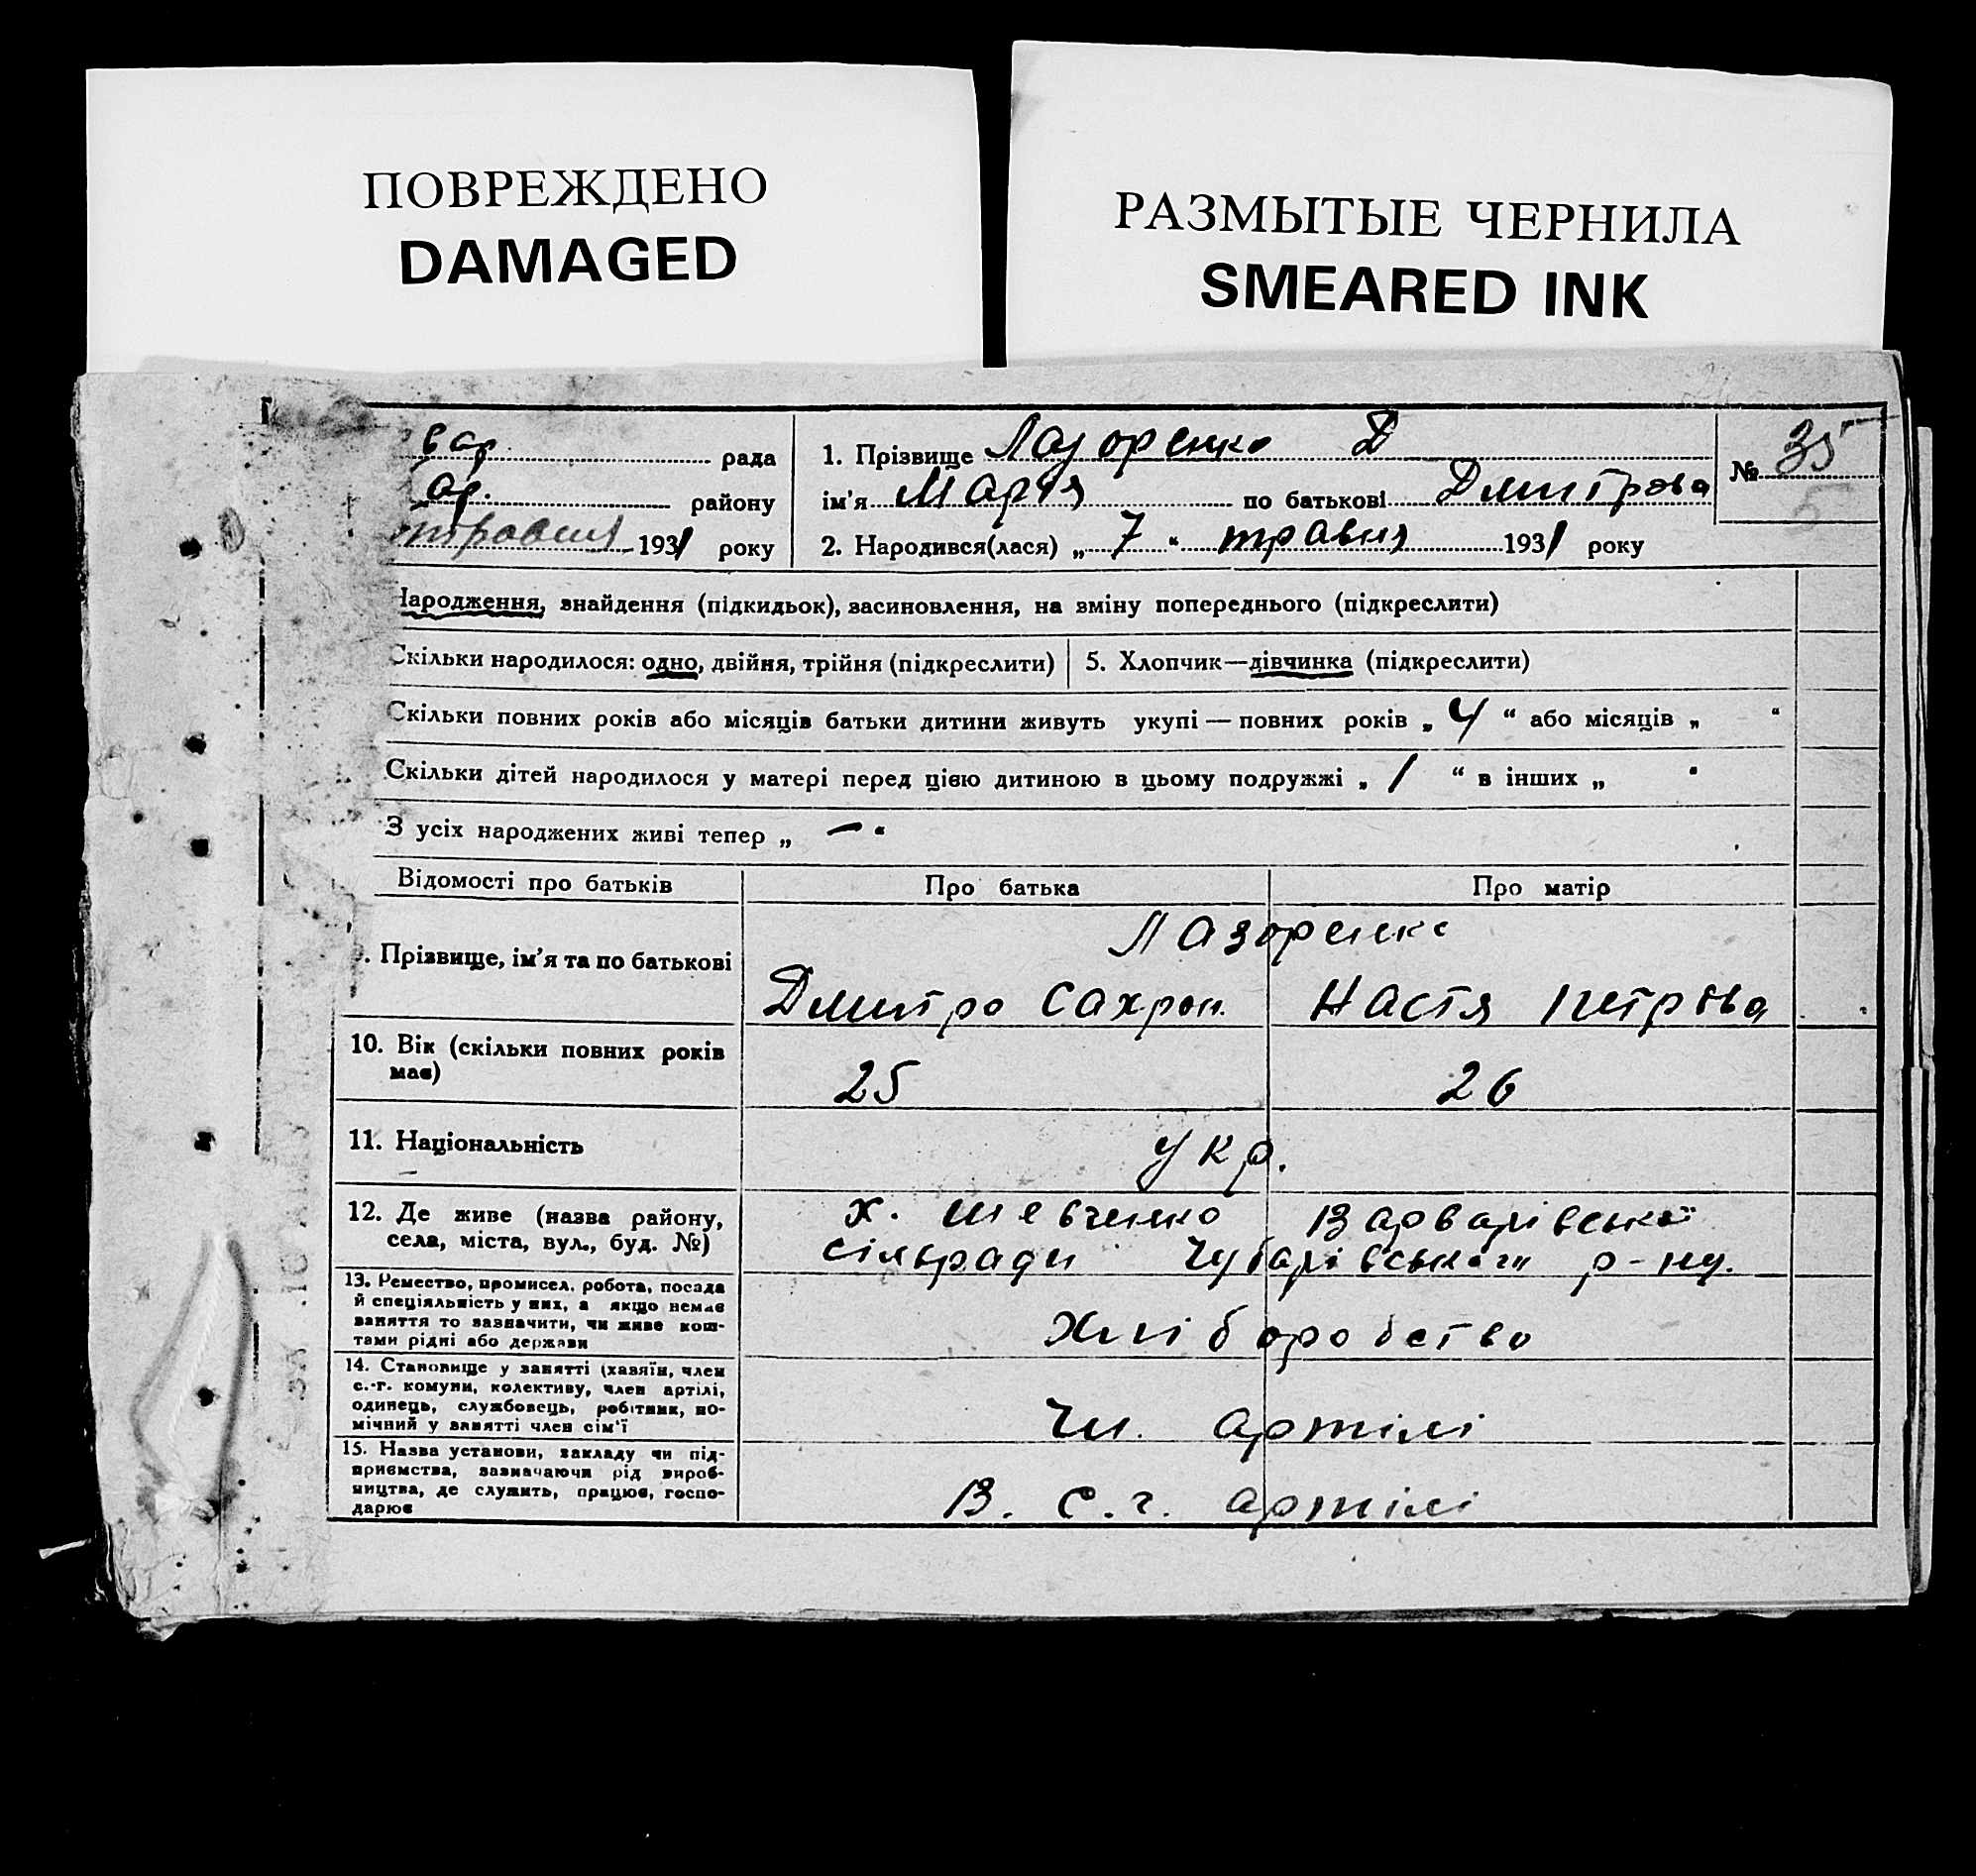 ПОВРЕЖДЕНО
DAMAGED
РАЗМЫТЫЕ ЧЕРНИЛА
SMEARED INK
вар. рада
ар. району
травня 1931 року
1. Прізвище Лазоренко Д
ім'я Марія по батькові Дмитрова
2. Народився(лася) „ 7 “ травня 1931 року
№ 35
5
Народження, знайдення (підкидьок), засиновлення, на зміну попереднього (підкреслити)
Скільки народилося: одно, двійня, трійня (підкреслити)
5. Хлопчик—дівчинка (підкреслити)
Скільки повних років або місяців батьки дитини живуть укупі — повних років „ 4 “ або місяців „ “
Скільки дітей народилося у матері перед цією дитиною в цьому подружжі „ 1 “ в інших „ “
З усіх народжених живі тепер „ — “
Відомості про батьків Про батька Про матір
. Прізвище, ім'я та по батькові
Лазоренко
Дмитро Сахрон. Настя Петрова
10. Вік (скільки повних років
має)
25 26
11. Національність
укр.
12. Де живе (назва району,
села, міста, вул., буд. №)
х. Шевченко Варварівської
сільради Чубарівського р-ну.
13. Ремество, промисел, робота, посада
й спеціяльність у них, а якщо немає
заняття то зазначити, чи живе кош-
тами рідні або держави
Хліборобство
14. Становище у занятті (хазяїн, член
с.-г. комуни, колективу, член артілі,
одинець, службовець, робітник, по-
мічний у занятті член сім'ї
Чл. артілі
15. Назва установи, закладу чи під-
приємства, зазначаючи рід вироб-
ництва, де служить, працює, госпо-
дарює
В. с.г. артілі